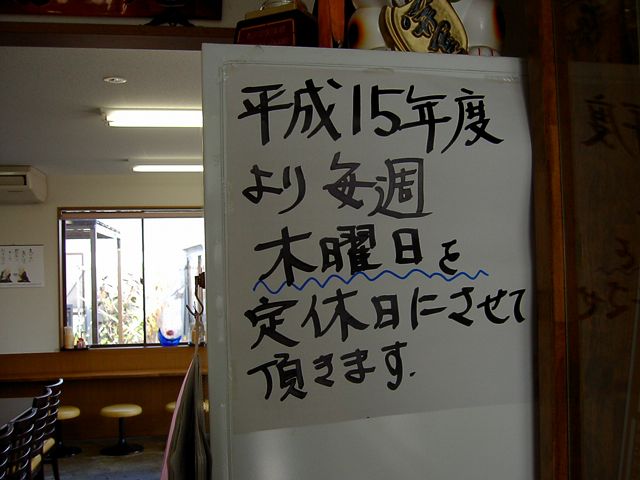 平成15年度
より毎週
木曜日を
定休日にさせて
頂きます.